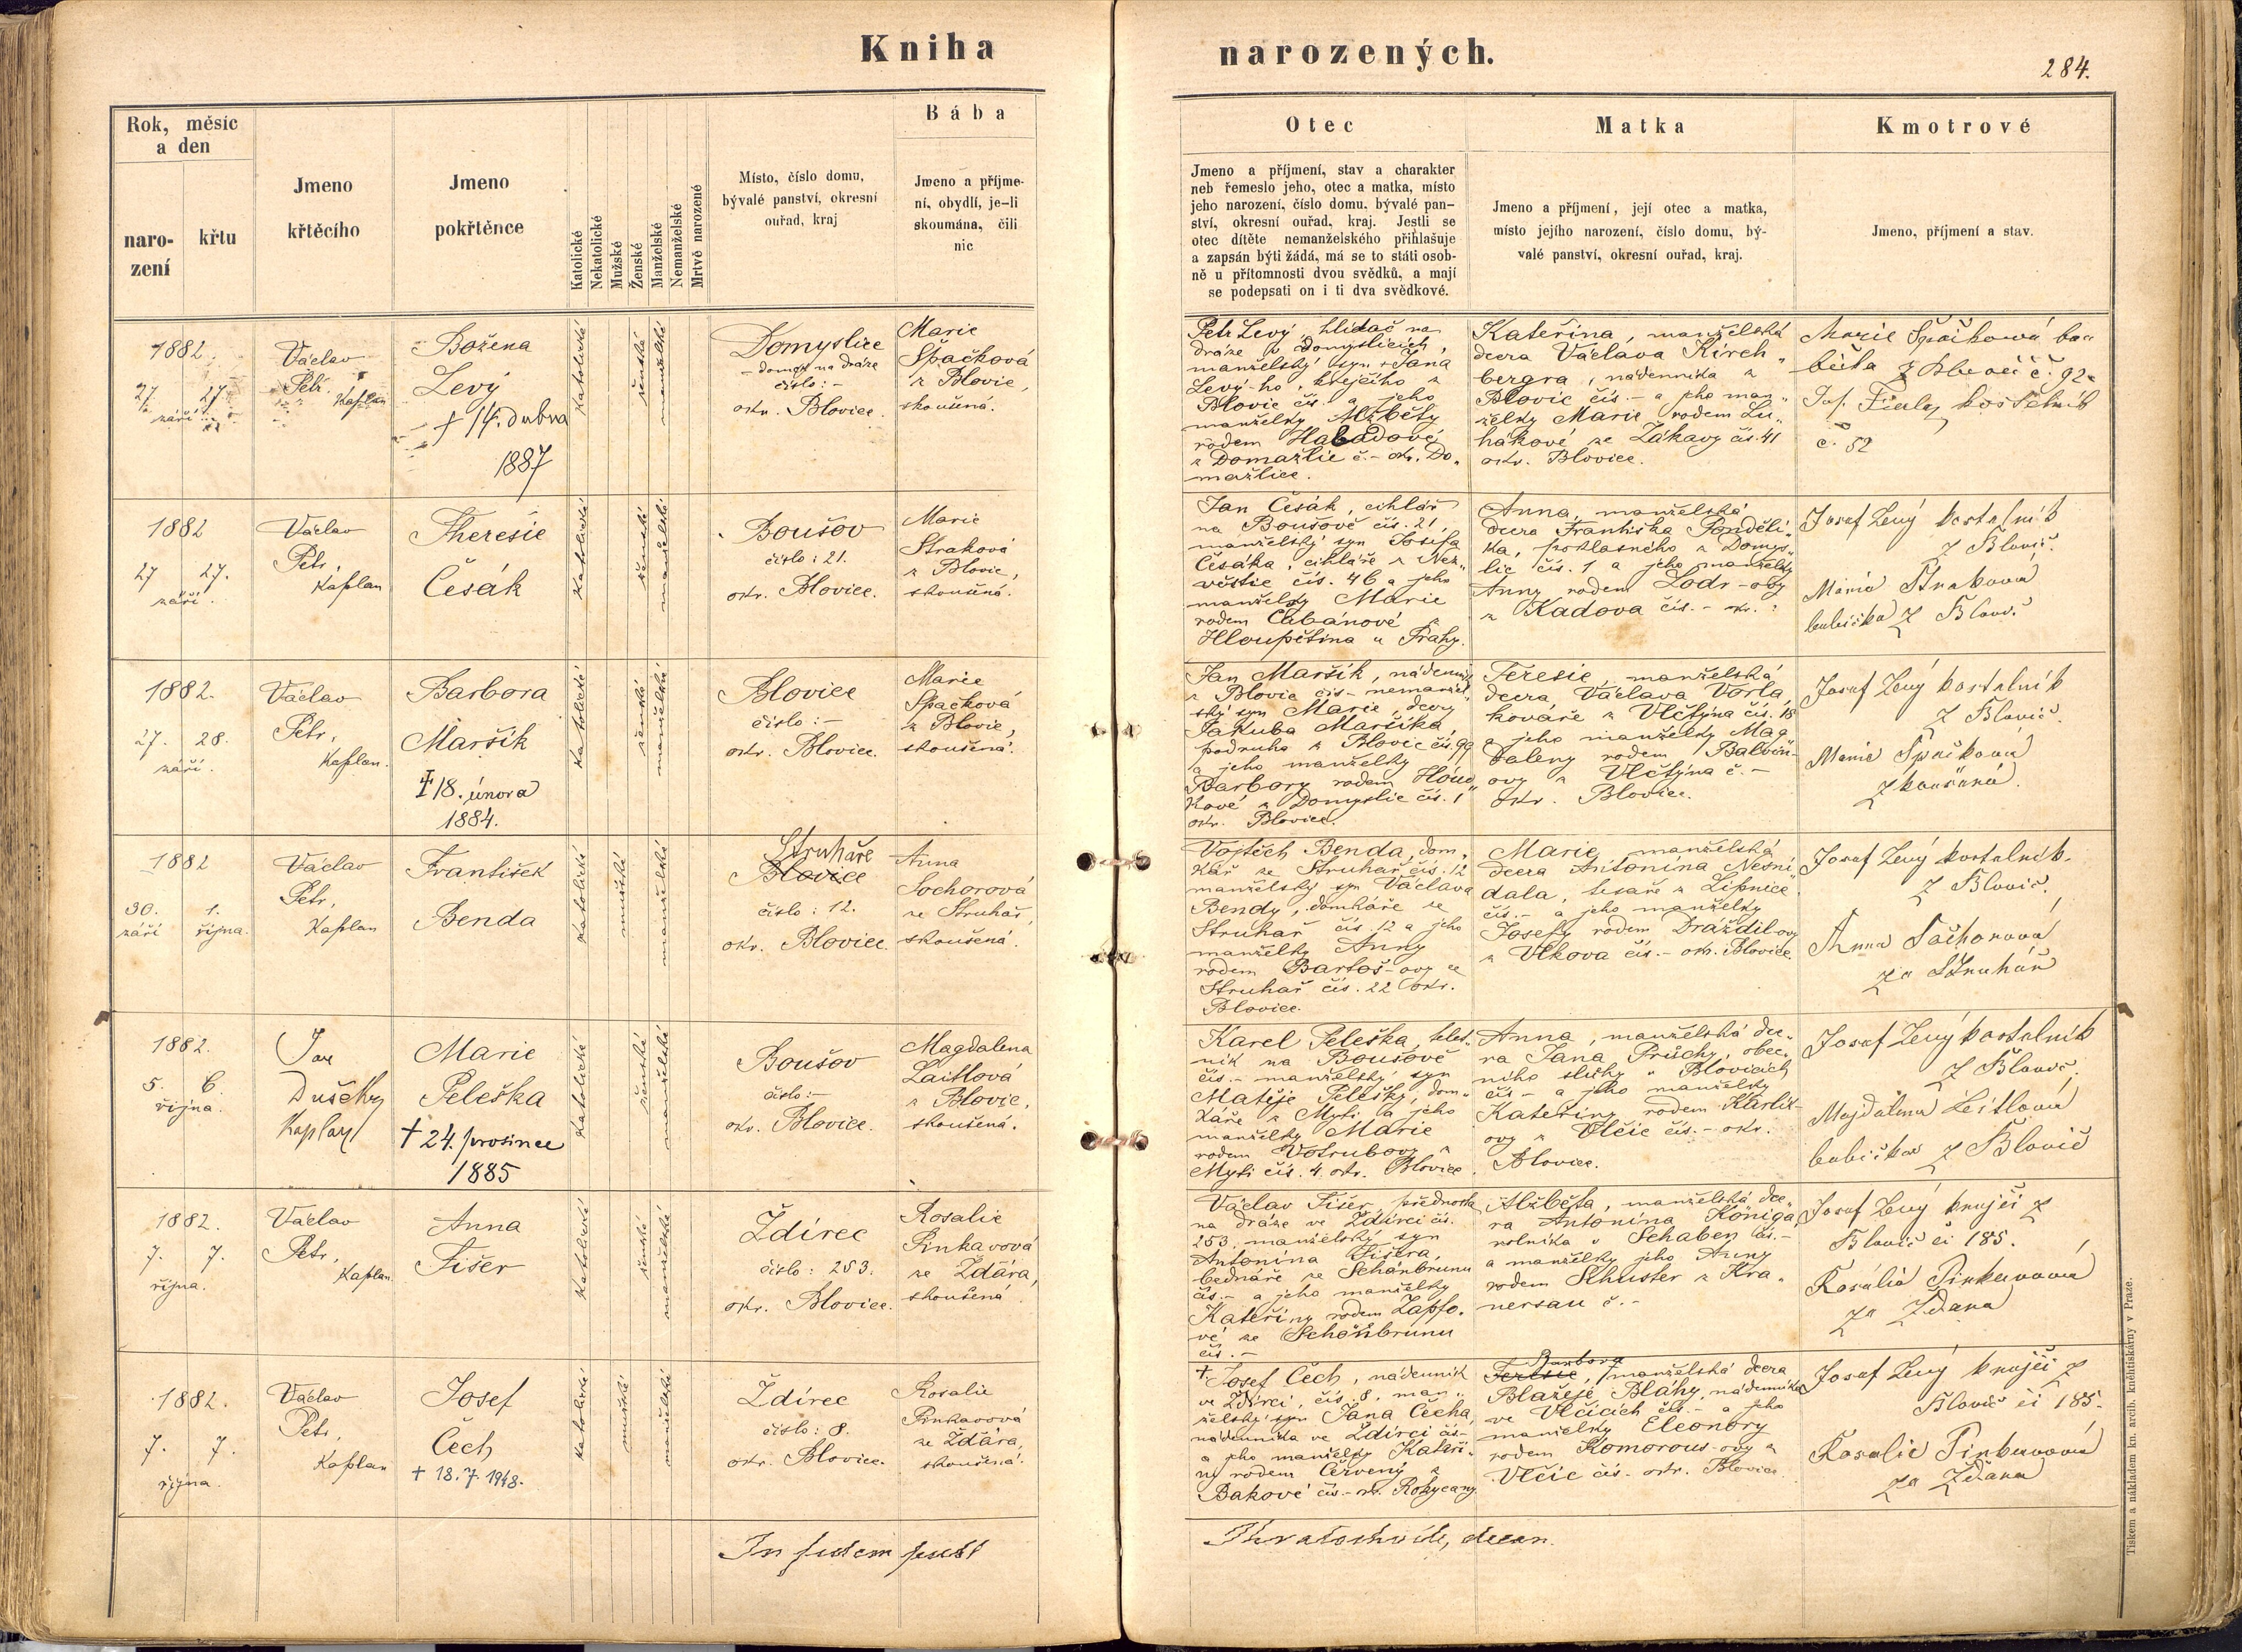 Kniha
narozených.
284.
Rok, měsíc
a den
naro-
zení
křtu
Jmeno
křtěcího
Jmeno
pokřtěnce
Katolické
Nekatolické
Mužské
Ženské
Manželské
Nemanželské
Mrtvě narozené
Místo, číslo domu,
bývalé panství, okresní
ouřad, kraj
Bába
Jmeno a příjme-
ní, obydlí, je-li
skoumána, čili
nic
Otec
Jmeno a příjmení, stav a charakter
neb řemeslo jeho, otec a matka, místo
jeho narození, číslo domu, bývalé pan-
ství, okresní ouřad, kraj. Jestli se
otec dítěte nemanželského přihlašuje
a zapsán býti žádá, má se to státi osob-
ně u přítomnosti dvou svědků, a mají
se podepsati on i ti dva svědkové.
Matka
Jmeno a příjmení, její otec a matka,
místo jejího narození, číslo domu, bý-
valé panství, okresní ouřad, kraj.
Kmotrové
Jmeno, příjmení a stav.
1882
27. 27.
září
Václav
Petr
Kaplan
Božena
Levý
+ 14. dubna
1887
katolické
ženské
manželské
Domyslice
- domek na dráze
číslo: -
okr. Blovice.
Marie
Špačková
z Blovic,
skoušená.
Petr Levý, hlídač na
dráze v Domyslicích,
manželský syn + Jana
Levý-ho, krejčího z
Blovic čís. - a jeho
manželky Alžběty
rodem Habadové
z Domažlic č. - okr. Do„
mažlice.
Kateřina, manželská
dcera Václava Kirch„
bergra, nádenníka z
Blovic čís. - a jeho man„
želky Marie rodem Lu„
hákové ze Zákavy čís. 41
okr. Blovice.
Marie Špačková ba-
bička z Blovic č. 92
Jos. Fiala, kostelník
č. 52
1882
27 27.
září.
Václav
Petr,
Kaplan
Theresie
Česák
katolické
ženské
manželské
Boušov
číslo: 21.
okr. Blovice.
Marie
Straková
z Blovic,
skoušená.
Jan Česák, cihlář
na Boušově čís. 21,
manželský syn Josefa
Česáka, cihláře z Nez„
věstic čís. 46 a jeho
manželky Marie
rodem Cabanové z
Hloupětína u Prahy.
Anna, manželská
dcera Františka Ponděli„
ka, poklasného z Domys„
lic čís. 1 a jeho manželky
Anny rodem Zodr-ovy
z Kadova čís. - okr. ?
Josef Levý kostelník
z Blovic.
Marie Straková
babička z Blovic
1882.
27. 28.
září.
Václav
Petr,
Kaplan.
Barbora
Maršík
+ 18. února
1884.
katolické
ženské
manželské
Blovice
číslo: -
okr. Blovice.
Marie
Špačková
z Blovic,
skoušená.
Jan Maršík, nádenník
z Blovic čís - nemanžel„
ský syn Marie, dcery
Jakuba Maršíka,
podruha z Blovic čís. 99
a jeho manželky
Barbory rodem Houd„
kové z Domyslic čís. 1
okr. Blovice.
Teresie manželská
dcera Václava Vorla,
kováře z Vlčtýna čís. 18
a jeho manželky Mag„
daleny rodem Balvín-
ovy z Vlčtýna č. -
okr. Blovice.
Josef Levý kostelník
z Blovic.
Marie Špačková
zkoušená.
1882
30. 1.
září října.
Václav
Petr,
Kaplan
František
Benda
katolické
mužské
manželské
Struhaře
Blovice
číslo: 12.
okr. Blovice.
Anna
Sochorová
ze Struhař,
skoušená.
Vojtěch Benda, dom„
kář ze Struhař čís. 12
manželský syn Václava
Bendy, domkáře ze
Struhař čís. 12 a jeho
manželky Anny
rodem Bartoš-ovy ze
Struhař čís. 22 okr.
Blovice.
Marie, manželská
dcera Antonína Nesni„
dala, tesaře z Lipnice
čís. - a jeho manželky
Josefy rodem Dráždil-ovy
z Vlkova čís. - okr. Blovice
Josef Levý kostelník
z Blovic.
Anna Sochorová
ze Struhař
1882.
5. 6.
října.
Jan
Dušek
Kaplan
Marie
Peleška
+ 24. prosince
1885
katolické
ženské
manželské
Boušov
číslo: -
okr. Blovice.
Magdalena
Laitlová
z Blovic,
skoušená.
Karel Peleška
nik na Boušově
čís. - manželský syn
Matěje Pelešky, dom„
káře z Mýti a jeho
manželky Marie
rodem Votrubovy z
Mýti čís. 4. okr. Blovice.
Anna, manželská dce„
ra Jana Průchy, obec„
ního sluhy v Blovicích
čís - a jeho manželky
Kateřiny rodem Karlík-
ovy z Vlčic čís. - okr.
Blovice.
Josef Levý kostelník
z Blovic.
Majdalena Leitlová
babička z Blovic
1882.
7. 7.
října.
Václav
Petr,
Kaplan.
Anna
Fišer
katolické
ženské
manželské
Ždírec
číslo: 253.
okr. Blovice.
Rosalie
Pinkavová
ze Ždára,
skoušená
Václav Fišer, přednosta
na dráze ve Ždírci čís.
253, manželský syn
Antonína Fišera,
bednáře ze Schönbrunu
čís. - a jeho manželky
Kateřiny rodem Zapfo-
vé ze Schönbrunu
čís. -
Alžběta, manželská dce„
ra Antonína Königa,
rolníka v Schaben čís. -
a manželky jeho Anny
rodem Schuster z Kra„
nersau č. -
Josef Levý krejčí z
Blovic čí 185.
Rosalie Pinkavová
ze Ždára
1882.
7. 7.
října.
Václav
Petr,
Kaplan
Josef
Čech
+ 18. 7. 1948.
katolické
mužské
manželské
Ždírec
číslo: 8.
okr. Blovice.
Rosalie
Pinkavová
ze Ždára,
skoušená.
+ Josef Čech, nádenník
ve Ždírci, čís. 8, man„
želský syn Jana Čecha,
nádenníka ve Ždírci čís-
a jeho manželky Kateři„
ny rodem Červený z
Bakové čís. - okr. Rokycany
Barbora
Teresie, manželská dcera
Blažeje Bláhy, nádenníka
ve Vlčicích čís. - a jeho
manželky Eleonory
rodem Komorous-ovy z
Vlčic čís. - okr. Blovice.
Josef Levý krejčí z
Blovic čí 185.
Rosalie Pinkavová
ze Ždára
In fidem
decan.
Tiskem a nákladem kn. arcib. knihtiskárny v Praze.